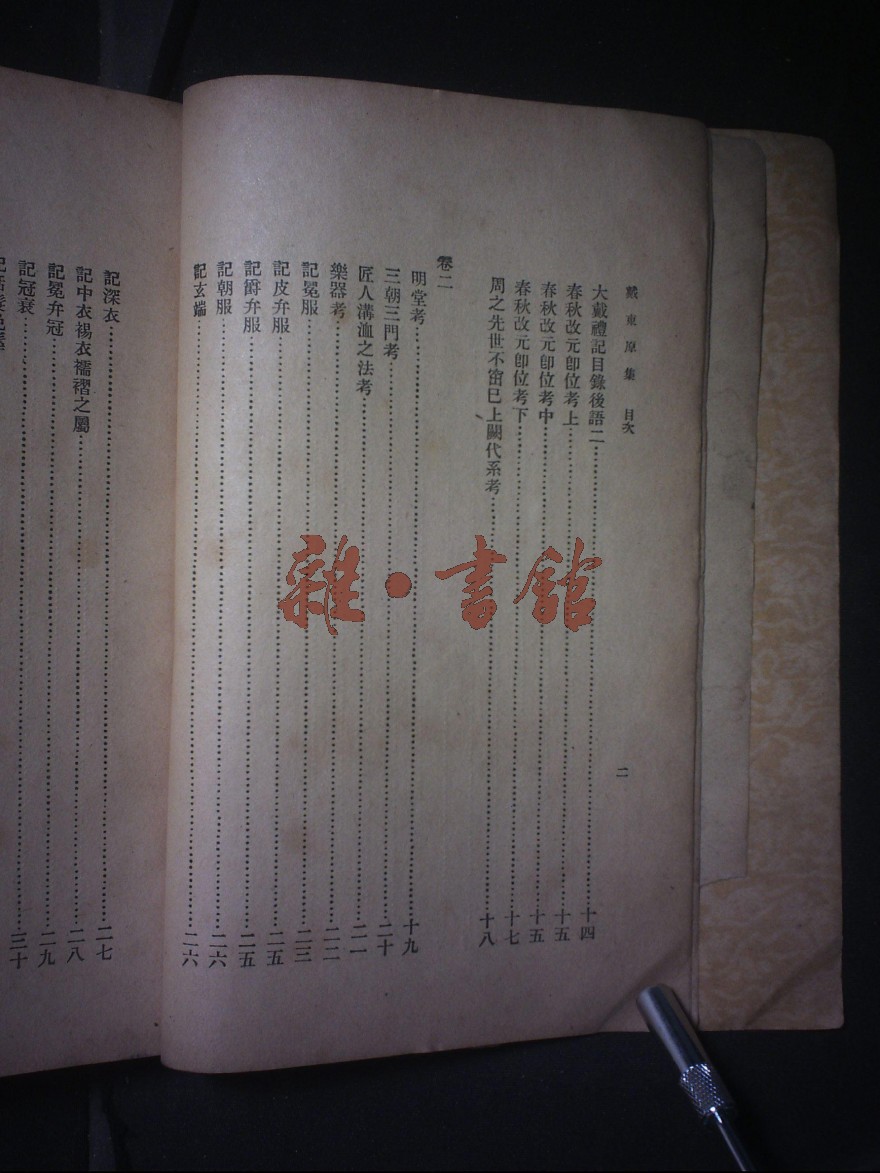 戴東原集 目次 二
大戴禮記目錄後語二 十四
春秋改元卽位考上 十五
春秋改元卽位考中 十五
春秋改元卽位考下 十七
周之先世不窋巳上闕代系考 十八
卷二
明堂考 十九
三朝三門考 二十
匠人溝洫之法考 二一
樂器考 二二
記冕服 二三
記皮弁服 二五
記爵弁服 二五
記朝服 二六
記玄端 二六
記深衣 二七
記中衣裼衣襦褶之屬 二八
記冕弁冠 二九
記冠衰 三十
雜·書館